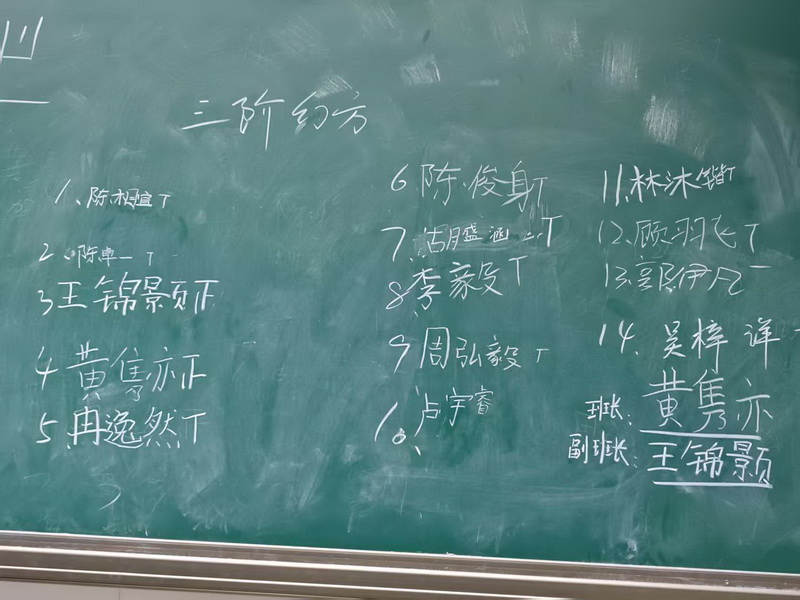 三阶幻方
1、陈相宜T
2、陈卓一T
3王锦颢正
4黄隽亦正
5、冉逸然T
6、陈俊身T
7、胡盛涵T
8、李毅T
9、周弘毅T
10、卢宇睿
11、林沐锴T
12、顾羽飞T
13、郭伊凡一
14、吴梓详
班长：黄隽亦
副班长：王锦颢